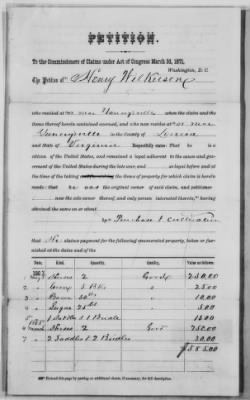 PETITION.
To the Commissioners of Claims under Act of Congress March 3d, 1871,
Washington, D. C.
The Petition of Henry Wilkerson
who resided at or near Gunnyville when the claim and the
items thereof herein contained accrued, and who now resides at or near
Gunnyville in the County of Louisa
and State of Virginia Respectfully states: That he is a
citizen of the United States, and remained a loyal adherent to the cause and govern-
ment of the United States during the late war, and so loyal before and at
the time of the taking of the items of property for which claim is herein
made: that he was the original owner of said claim, and petitioner
now the sole owner thereof, and only person interested therein,
obtained the same on or about
by Purchase & cultivation
That He claims payment for the following enumerated property, taken or fur-
nished at the dates and of the
No. Date. Kind. Quantity. Quality. Value or Amount.
1 Horses 2 Good 250.00
2 Corn 5 Bls 25.00
3 Bacon 50 lbs 10.00
4 Sugar 20 lbs 5.00
5 1 Saddle & 1 Bridle 15.00
6 Horses 2 Good 250.00
7 2 Saddles & 2 Bridles 30.00
$585.00